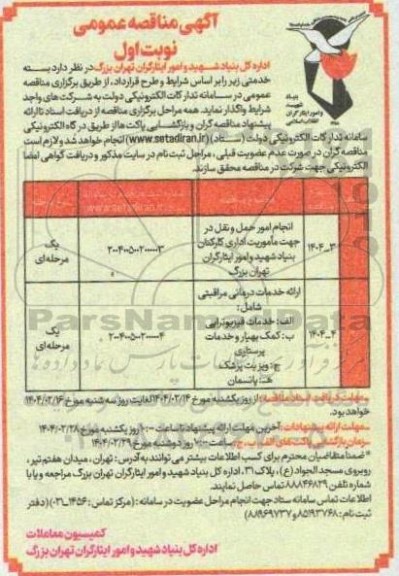 آگهی مناقصه عمومی
نوبت اول
بنیاد
شهید
و امور ایثارگران
انقلاب اسلامی
اداره کل بنیاد شهید و امور ایثارگران تهران بزرگ در نظر دارد بسته
خدمتی زیر را بر اساس شرایط و طرح قرارداد، از طریق برگزاری مناقصه
عمومی در سامانه تدارکات الکترونیکی دولت به شرکت های واجد
شرایط واگذار نماید. همه مراحل برگزاری مناقصه از دریافت اسناد تا ارائه
پیشنهاد مناقصه گران و بازگشایی پاکت ها از طریق در گاه الکترونیکی
سامانه تدارکات الکترونیکی دولت (ستاد) (www.setadiran.ir) انجام خواهد شد و لازم است
مناقصه گران در صورت عدم عضویت قبلی، مراحل ثبت نام در سایت مذکور و دریافت گواهی امضا
الکترونیکی جهت شرکت در مناقصه محقق سازند.
۳_۱۴۰۴
انجام امور حمل و نقل در
جهت مأموریت اداری کارکنان
بنیاد شهید و امور ایثارگران
تهران بزرگ
۲۰۰۴۰۰۵۰۰۲۰۰۰۰۰۳
یک
مرحله ای
۴_۱۴۰۴
ارائه خدمات درمانی مراقبتی
شامل:
الف: خدمات فیزیوتراپی
ب: کمک بهیار و خدمات
پرستاری
ج: ویزیت پزشک
هـ: پانسمان
یک
مرحله ای
ParsNamadData
_مهلت دریافت اسناد مناقصه: از روز یکشنبه مورخ ۱۴۰۴/۰۲/۱۴ لغایت روز سه شنبه مورخ ۱۴۰۴/۰۲/۱۶
خواهد بود.
_مهلت ارائه پیشنهادات: آخرین مهلت ارائه پیشنهاد تا ساعت ۱۰:۰۰ روز یکشنبه مورخ ۱۴۰۴/۰۲/۲۸
_زمان بازگشایی پاکت های الف، ب، ج: ساعت ۱۰:۰۰ روز دوشنبه مورخ ۱۴۰۴/۰۲/۲۹
* ضمنا متقاضیان محترم برای کسب اطلاعات بیشتر می توانند به آدرس: تهران، میدان هفتم تیر،
روبروی مسجد الجواد (ع)، پلاک ۳۱، اداره کل بنیاد شهید و امور ایثارگران تهران بزرگ مراجعه و یا با
شماره تلفن ۸۸۸۴۶۸۲۹ تماس حاصل نمایند.
اطلاعات تماس سامانه ستاد جهت انجام مراحل عضویت در سامانه: (مرکز تماس: ۱۴۵۶_۰۲۱) (دفتر
ثبت نام: ۸۵۱۹۳۷۶۸ و ۸۸۹۶۹۷۳۷)
کمیسیون معاملات
اداره کل بنیاد شهید و امور ایثارگران تهران بزرگ